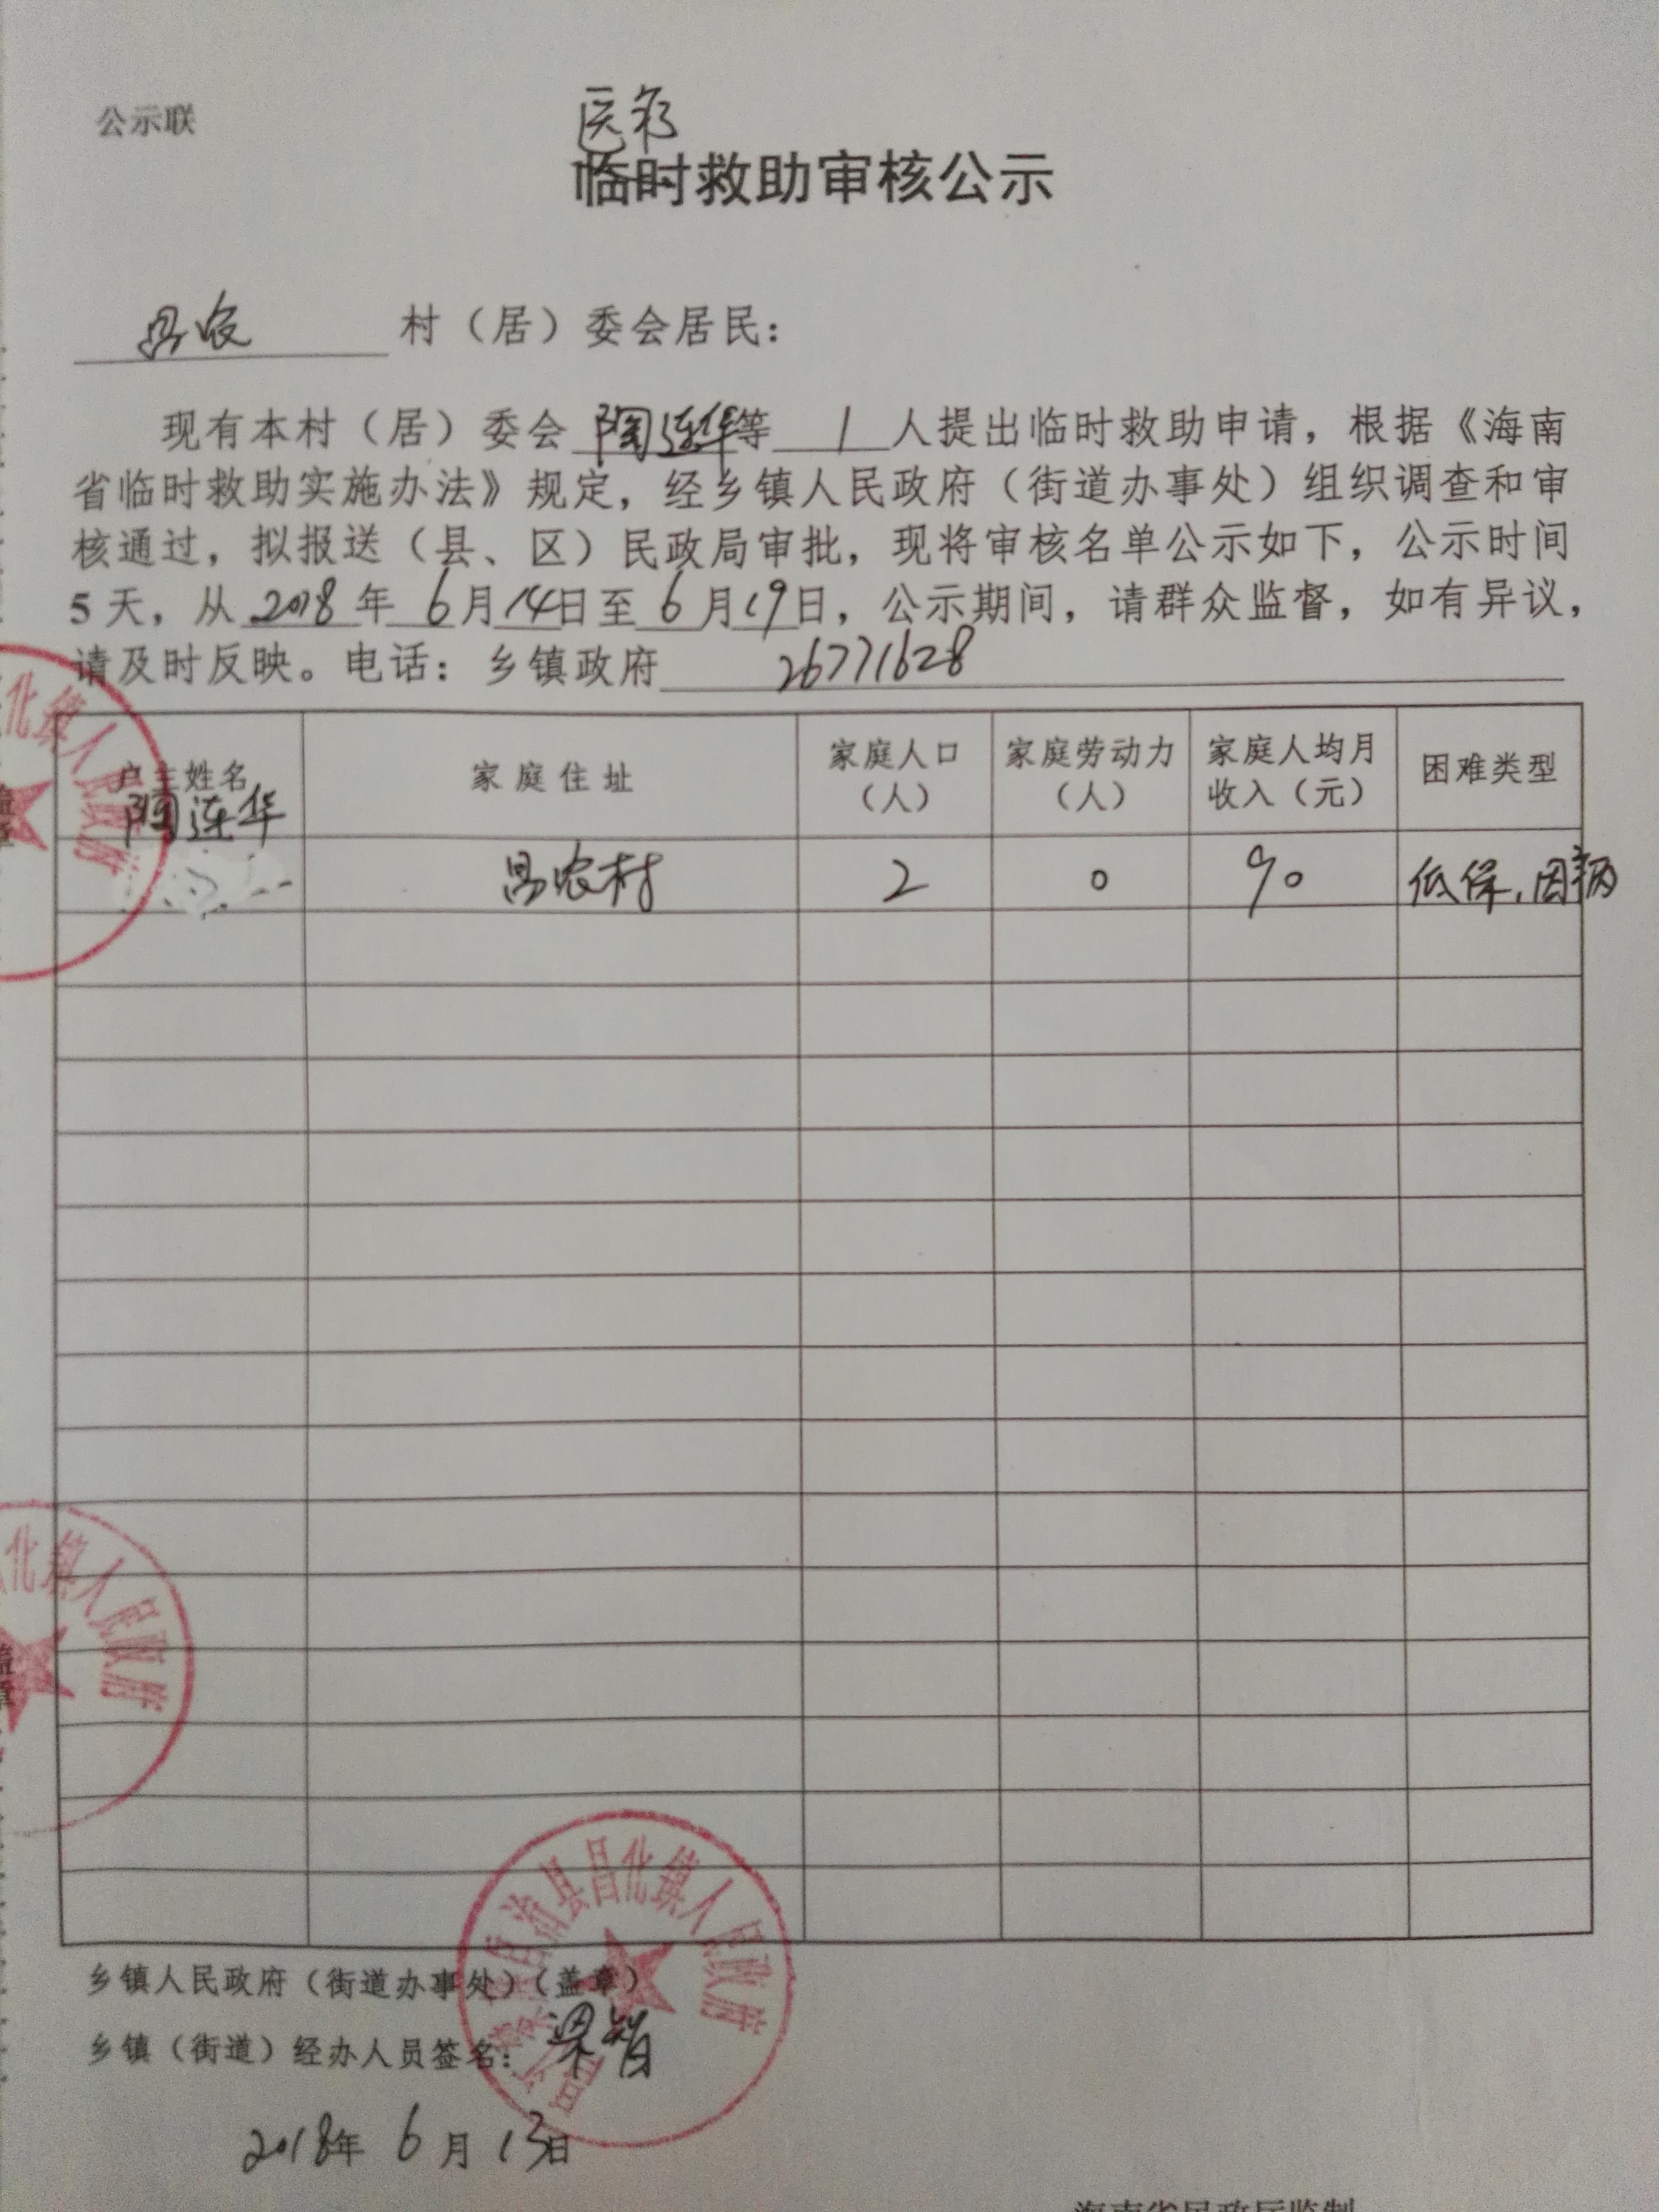 公示联
医疗
临时救助审核公示
昌农 村（居）委会居民：
现有本村（居）委会 陶连华等 1 人提出临时救助申请，根据《海南
省临时救助实施办法》规定，经乡镇人民政府（街道办事处）组织调查和审
核通过，拟报送（县、区）民政局审批，现将审核名单公示如下，公示时间
5 天，从 2018 年 6 月 14 日至 6 月 19 日，公示期间，请群众监督，如有异议，
请及时反映。电话：乡镇政府 26771628
户主姓名 家庭住址 家庭人口（人） 家庭劳动力（人） 家庭人均月收入（元） 困难类型
陶连华
昌农村 2 0 90 低保，因病
化镇人民政府
盖章
化镇人民政府
盖章
昌江黎族自治县昌化镇人民政府
乡镇人民政府（街道办事处）（盖章）
乡镇（街道）经办人员签名：梁智
2018年 6 月 13日
海南省民政厅监制